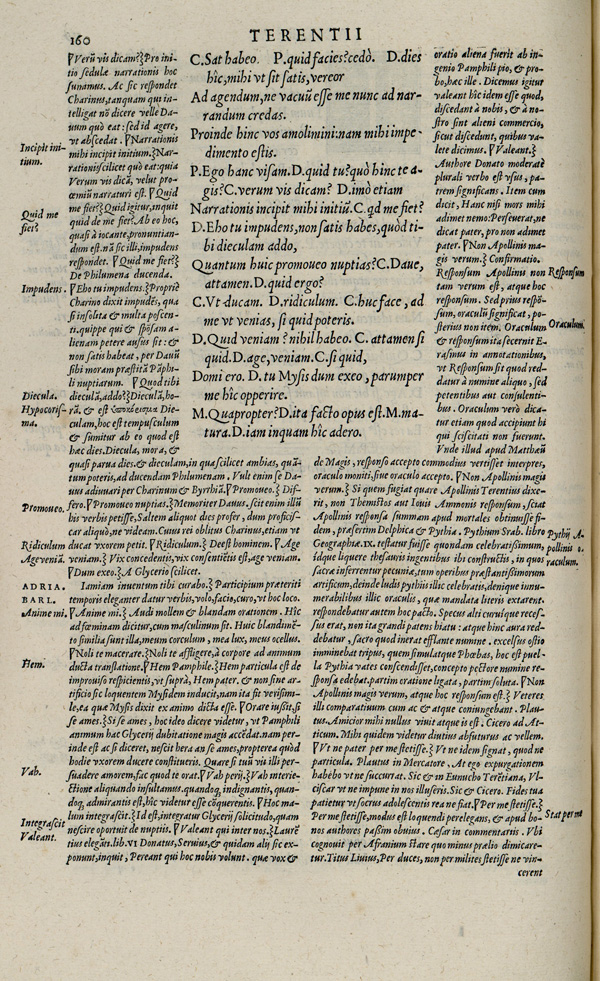 160
TERENTII
C. Sat habeo. P. quid facies? cedò. D. dies
hîc, mihi vt sit satis, vereor
Ad agendum, ne vacuũ esse me nunc ad nar-
randum credas.
Proinde hinc vos amolimini: nam mihi impe-
dimento estis.
P. Ego hanc visam. D. quid tu? quò hinc te a-
gis? C. verum vis dicam? D. imò etiam
Narrationis incipit mihi initiũ. C. qd me fiet?
D. Eho tu impudens, non satis habes, quòd ti-
bi dieculam addo,
Quantum huic promoueo nuptias? C. Daue,
attamen. D. quid ergo?
C. Vt ducam. D. ridiculum. C. huc face, ad
me vt venias, si quid poteris.
D. Quid veniam? nihil habeo. C. attamen si
quid. D. age, veniam. C. si quid,
Domi ero. D. tu Mysis dum exeo, parumper
me hîc opperire.
M. Quapropter? D. ita facto opus est. M. ma-
tura. D. iam inquam hîc adero.
Incipit ini-
tium.
Quid me
fiet?
Impudens.
Diecula.
Hypocoris-
ma.
Promoueo.
Ridiculum
Age veniã.
ADRIA.
BARL.
Anime mi.
Hem.
Vah.
Integrascit
Valeant.
Verũ vis dicam? Pro ini-
tio sedulæ narrationis hoc
sumamus. Ac sic respondet
Charinus, tanquam qui in-
telligat nõ dicere velle Da-
uum quò eat: sed id agere,
vt abscedat. Narrationis
mihi incipit initium. Nar-
rationis scilicet quò eat: quia
Verum vis dicã, velut pro-
œmiũ narraturi est. Quid
me fiet? Quid igitur, inquit
quid de me fiet? Ab eo hoc,
quasi à iocante, pronuntian-
dum est. nã sic illi, impudens
respondet. Quid me fiet?
De Philumena ducenda.
Eho tu impudens. Propriè
Charino dixit impudẽs, qua
si insolita & multa poscen-
ti. quippe qui & spõsam a-
lienam petere ausus sit: &
non satis habeat, per Dauũ
sibi moram præstitã Pãphi-
li nuptiarum. Quod tibi
dieculã, addo? Dieculã, ho-
rã, & est ὑποκόρισμα Die-
culam, hoc est tempusculum
& sumitur ab eo quod est
hæc dies. Diecula, mora, &
quasi parua dies. & dieculam, in qua scilicet ambias, quã-
tum poteris, ad ducendam Philumenam. Vult enim se Da-
uus adiuuari per Charinum & Byrrhiã. Promoueo. Dif-
fero. Promoueo nuptias. Memoriter Dauus. scit enim illũ
his verbis petisse, Saltem aliquot dies profer, dum profici-
scar aliquò, ne videam. Cuius rei oblitus Charinus, etiam vt
ducat vxorem petit. Ridiculum. Deest hominem. Age
veniam. Vix concedentis, vix consentiẽtis est, age veniam.
Dum exeo. A Glycerio scilicet.
Iamiam inuentum tibi curabo. Participium præteriti
temporis eleganter datur verbis, volo, facio, curo, vt hoc loco.
Anime mi. Audi mollem & blandam orationem. Hîc
ad fœminam dicitur, cum masculinum sit. Huic blandimẽ-
to similia sunt illa, meum corculum, mea lux, meus ocellus.
Noli te macerare. Noli te affligere, à corpore ad animum
ducta translatione. Hem Pamphile. Hem particula est de
improuiso respicientis, vt suprà, Hem pater. & non sine ar-
tificio sic loquentem Mysidem inducit, nam ita fit verisimi-
le, ea quæ Mysis dixit ex animo dicta esse. Orare iussit, si
se ames. Si se ames, hoc ideo dicere videtur, vt Pamphili
animum hac Glycerij dubitatione magis accẽdat. nam per-
inde est ac si diceret, nescit hera an se ames, propterea quòd
hodie vxorem ducere constitueris. Quare si tuũ vis illi per-
suadere amorem, fac quod te orat. Vah perij. Vah interie-
ctione aliquando insultamus. quandoq; indignantis, quan-
doq; admirantis est, hîc videtur esse cõquerentis. Hoc ma-
lum integrascit. Id est, integratur Glycerij solicitudo, quam
nescire oportuit de nuptiis. Valeant qui inter nos. Laurẽ
tius elegãt. lib. VI Donatus, Seruius, & quidam alij sic ex-
ponunt, inquit, Pereant qui hoc nobis volunt. quæ vox &
oratio aliena fuerit ab in-
genio Pamphili pio, & pro-
bo, hæc ille. Dicemus igitur
valeant hîc idem esse quod,
discedant à nobis, & à no-
stro sint alieni commercio,
sicut discedunt, quibus va-
lete dicimus. Valeant.
Authore Donato moderatè
plurali verbo est vsus, pa-
trem significans. Item cum
dicit, Hanc nisi mors mihi
adimet nemo: Perseuerat, ne
dicat pater, pro non adimet
pater. Non Apollinis ma-
gis verum. Confirmatio.
Responsum Apollinis non
tam verum est, atque hoc
responsum. Sed prius respõ-
sum, oraculũ significat, po-
sterius non item. Oraculum
& responsum ita secernit E-
rasmus in annotationibus,
vt Responsum sit quod red-
datur à numine aliquo, sed
petentibus aut consulenti-
bus. Oraculum verò dica-
tur etiam quod accipiunt hi
qui sciscitati non fuerunt.
Vnde illud apud Matthæũ
de Magis, responso accepto commodius vertisset interpres,
oraculo moniti, siue oraculo accepto. Non Apollinis magis
verum. Si quem fugiat quare Apollinis Terentius dixe-
rit, non Themistos aut Iouis Ammonis responsum, sciat
Apollinis responsa summam apud mortales obtinuisse fi-
dem, præsertim Delphica & Pythia. Pythium Strab. libro
Geographiæ. IX. testatur fuisse quondam celebratissimum,
idque liquere thesauris ingentibus ibi constructis, in quos
sacra inferrentur pecunia, tum operibus præstantissimorum
artificum, deinde ludis pythiis illic celebratis, denique innu-
merabilibus illic oraculis, quæ mandata literis extarent.
respondebatur autem hoc pacto. Specus alti cuiusque reces-
sus erat, non ita grandi patens hiatu: atque hinc aura red-
debatur, sacro quod inerat efflante numine. excelsus ostio
imminebat tripus, quem simulatque Phœbas, hoc est puel-
la Pythia vates conscendisset, concepto pectore numine re-
sponsa edebat. partim oratione ligata, partim soluta. Non
Apollinis magis verum, atque hoc responsum est. Veteres
illi comparatiuum cum ac & atque coniungebant. Plau-
tus. Amicior mihi nullus viuit atque is est. Cicero ad At-
ticum. Mihi quidem videtur diutius abfuturus ac vellem.
Vt ne pater per me stetisse. Vt ne idem signat, quod ne
particula. Plautus in Mercatore. At ego expurgationem
habebo vt ne succurrat. Sic & in Eunucho Terẽtiana, Vl-
ciscar vt ne impune in nos illuseris. Sic & Cicero. Fides tua
patietur vt socrus adolescentis rea ne fiat. Per me stetisse.
Per me stetisse, modus est loquendi perelegans, & apud bo-
nos authores passim obuius. Cæsar in commentariis. Vbi
cognouit per Afranium stare quo minus prælio dimicare-
tur. Titus Liuius, Per duces, non per milites stetisse ne vin-
cerent
Responsum
Oraculum.
Pythij A-
pollinis o-
raculum.
Stat per me